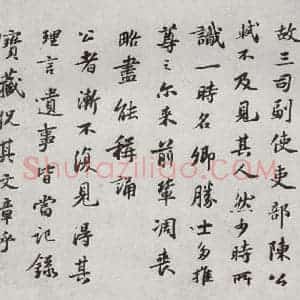 故三司副使吏部陳公
軾不及見其人然少時所
識一時名卿勝士多推
尊之尔来前輩凋喪
略盡能稱誦
公者漸不復見得其
理言遺事皆當記錄
寶藏況其文章乎
Shufaziliao.com